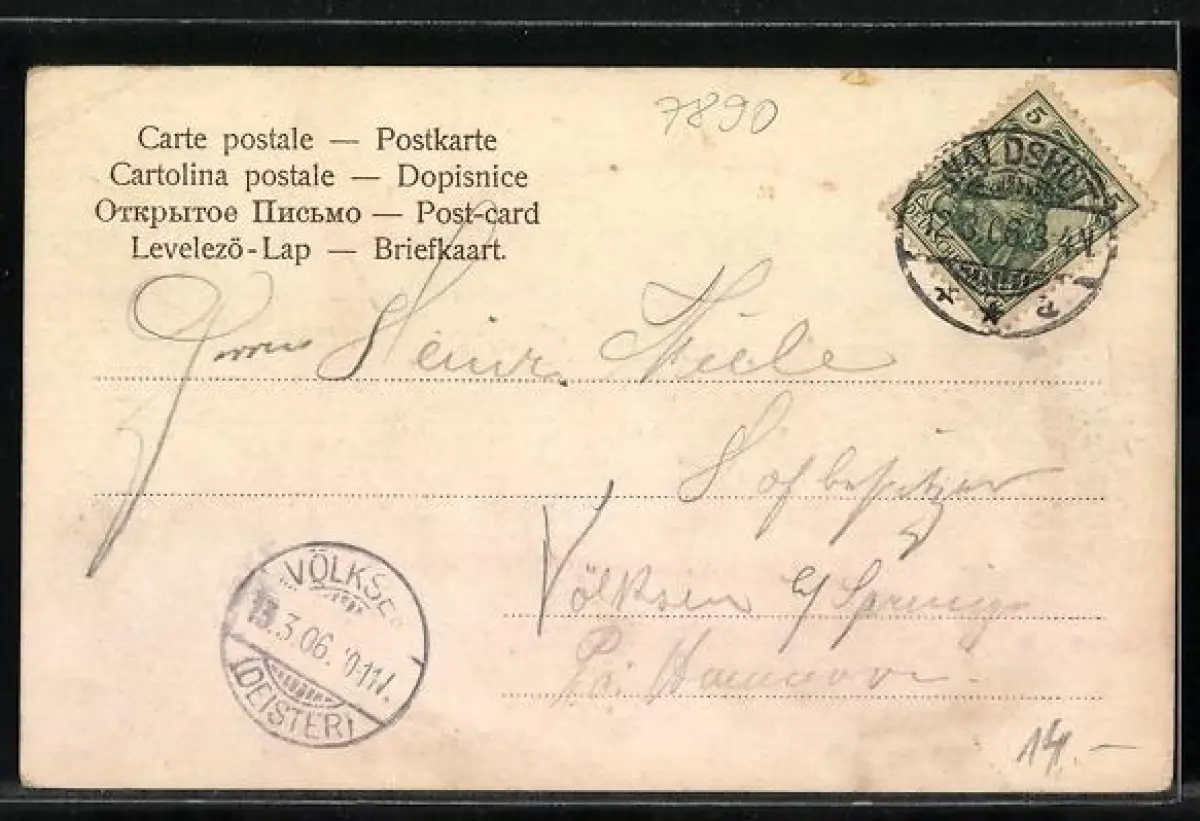 7890
Carte postale — Postkarte
Cartolina postale — Dopisnice
Открытое Письмо — Post-card
Levelező-Lap — Briefkaart.
5 5
WALDSHUT
12.3.06.3-4V
* * a
Herrn Heinr. Thiele
Hofbesitzer
Völksen Springe
Hannover.
VÖLKSE
13.3.06.
(DEISTER)